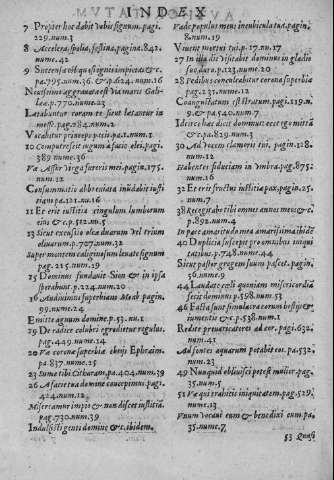 INDEX
7 Propter hoc dabit vobis signum. pagi.
229. num. 1
8 Accelera, spolia, festina, pagina. 842.
nume. 42
9 Succensa est quasi ignis impietas & c.
pa. 795. num. 36. & c. 624. num. 16
Nouissimo aggrauata est via maris Gali-
lea. p. 770. nume. 23
Lætabuntur coram te sicut lætantur in
messe. pag. 282. num. 2
Vocabitur princeps pacis. pa. 1. num. 1
10 Computrescit iugum à facie olei, pagi.
389. nume. 36
Væ Assur virga furoris mei. pagi. 175.
nume. 12
Consummatio abbreviata inūdabit iusti
tiam pa. 121. num. 16
11 Et erit iustitia cingulum lumborum
eius & c. p. 512. nu. 5
13 Sicut excussio olea duarum vel trium
oliuarum. p. 777. num. 32
Super montem caliginosum leuate signum
pag. 215. num. 19
25 Dominus fundauit Sion & in ipsa
sperabunt. p. 224. num. 20
16 Audiuimus superbiam Moab pagin.
99. num. 24
Emitte agnum domine. p. 53. nu. 1
29 De radice colubri egredietur regulus.
pag. 449. num. 14
20 Væ coronæ superbiæ ebrijs Ephraim.
pa. 837. num. 25
23 Sume tibi Citharam. pa. 404. num. 39
26 A facie tua domine concepimus. pagi.
424. num. 12
Misereamur impio & non discet iustitiā.
pag. 730. num. 39
Indulsisti genti domine & c. ibidem.
Vade populus meus in cubicula tua. pagin.
8. num. 19
Viuent mortui tui. p. 17. nu. 17
27 In illa die visitabit dominus in gladio
suo duro. p. 123. num. 20
28 Pedibus conculcabitur corona superbiæ
pag. 231. num. 12
Coangustatum est stratum. pagi. 119. n.
9. & c. 754. num. 10
Ideo hæc dicit dominus ecce ego mittā
& c. pa. 829. num. 1
30 Ad vocem clamoris tui, pagin. 128.
num. 12
Habentes fiduciam in vmbra. pag. 875.
num. 16
32 Et erit fructus iustitiæ pax, pagin. 25.
num. 7
38 Recogitabo tibi omnes annos meos & c.
p. 892. num. 4
In pace amaritudo mea amarissima ibidē
40 Duplicia suscepit pro omnibus iniqui
tatibus. p. 748. nume. 44
Sicut pastor gregem suum pascet. pagin.
56. nume. 9
44 Laudate cœli quoniam misericordiā
fecit dominus p. 598. num. 53
46 Facta sunt simulacra eorum bestijs &
iumentis & c. p. 538. num. 1
Redite præuaricatores ad cor. pagi. 632,
num. 41
Ad fontes aquarum potabit eos. pa. 532.
num. 23
49 Nunquid obliuisci potest mulier. pag.
35. num. 5
51 Væ qui trahitis iniquitatem. pag. 529.
num. 19
Vnum vocaui eum & benedixi eum pa.
35. nume. 7
53 Quasi